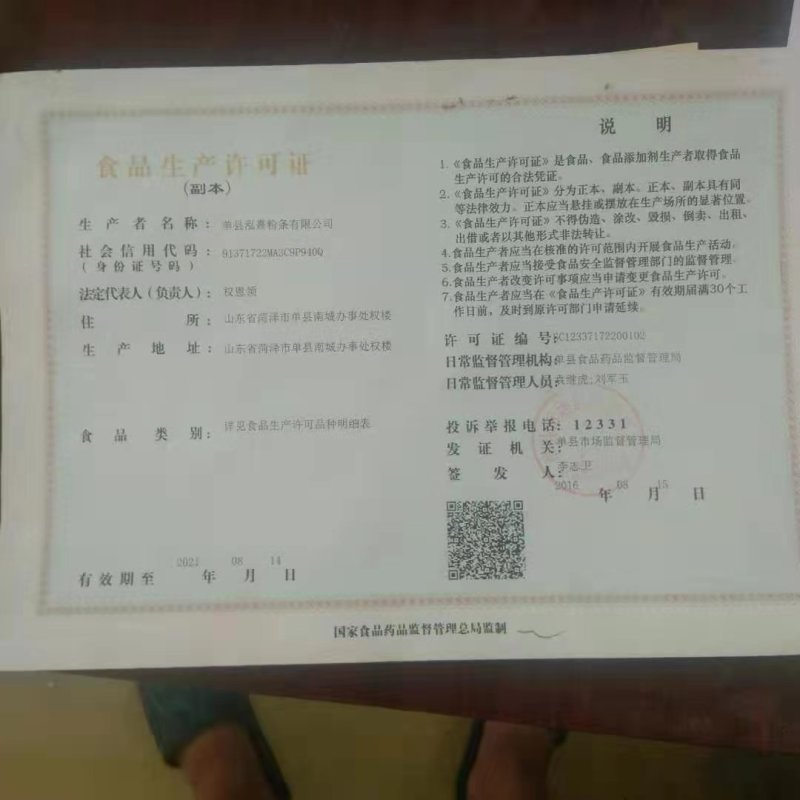 食品生产许可证
(副本)
生产者名称：单县泓熹粉条有限公司
社会信用代码：91371722MA3C9P940Q
(身份证号码)
法定代表人(负责人)：权恩领
住所：山东省菏泽市单县南城办事处权楼
生产地址：山东省菏泽市单县南城办事处权楼
食品类别：详见食品生产许可品种明细表
有效期至 2021 年 08 月 14 日
说明
1.《食品生产许可证》是食品、食品添加剂生产者取得食品
生产许可的合法凭证。
2.《食品生产许可证》分为正本、副本。正本、副本具有同
等法律效力。正本应当悬挂或摆放在生产场所的显著位置。
3.《食品生产许可证》不得伪造、涂改、毁损、倒卖、出租、
出借或者以其他形式非法转让。
4.食品生产者应当在核准的许可范围内开展食品生产活动。
5.食品生产者应当接受食品安全监督管理部门的监督管理。
6.食品生产者改变许可事项应当申请变更食品生产许可。
7.食品生产者应当在《食品生产许可证》有效期届满30个工
作日前，及时到原许可部门申请延续。
许可证编号：SC12337172200102
日常监督管理机构：单县食品药品监督管理局
日常监督管理人员：袁继虎;刘军玉
投诉举报电话：12331
发证机关：单县市场监督管理局
签发人：李志卫
2016 年 08 月 15 日
国家食品药品监督管理总局监制